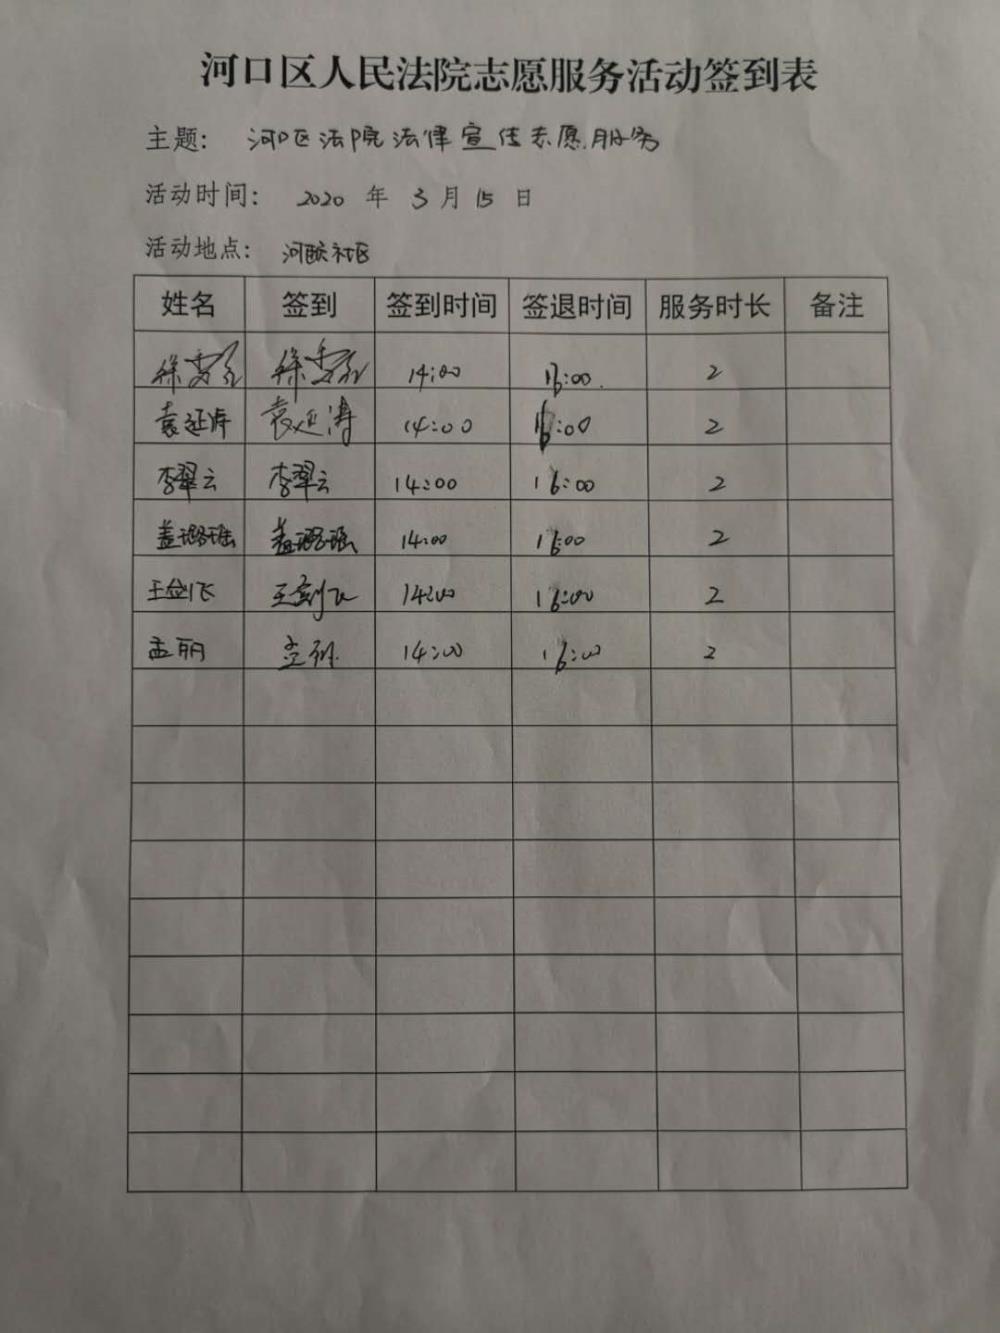 河口区人民法院志愿服务活动签到表
主题: 河口区法院法律宣传志愿服务
活动时间: 2020 年 3 月 15 日
活动地点: 社区
姓名 签到 签到时间 签退时间 服务时长 备注
徐 徐 14:00 16:00. 2
袁延涛 袁延涛 14:00 16:00 2
李翠云 李翠云 14:00 16:00 2
盖璐瑶 盖璐瑶 14:00 16:00 2
王剑飞 王剑飞 14:00 16:00 2
孟丽 孟丽 14:00 16:00 2